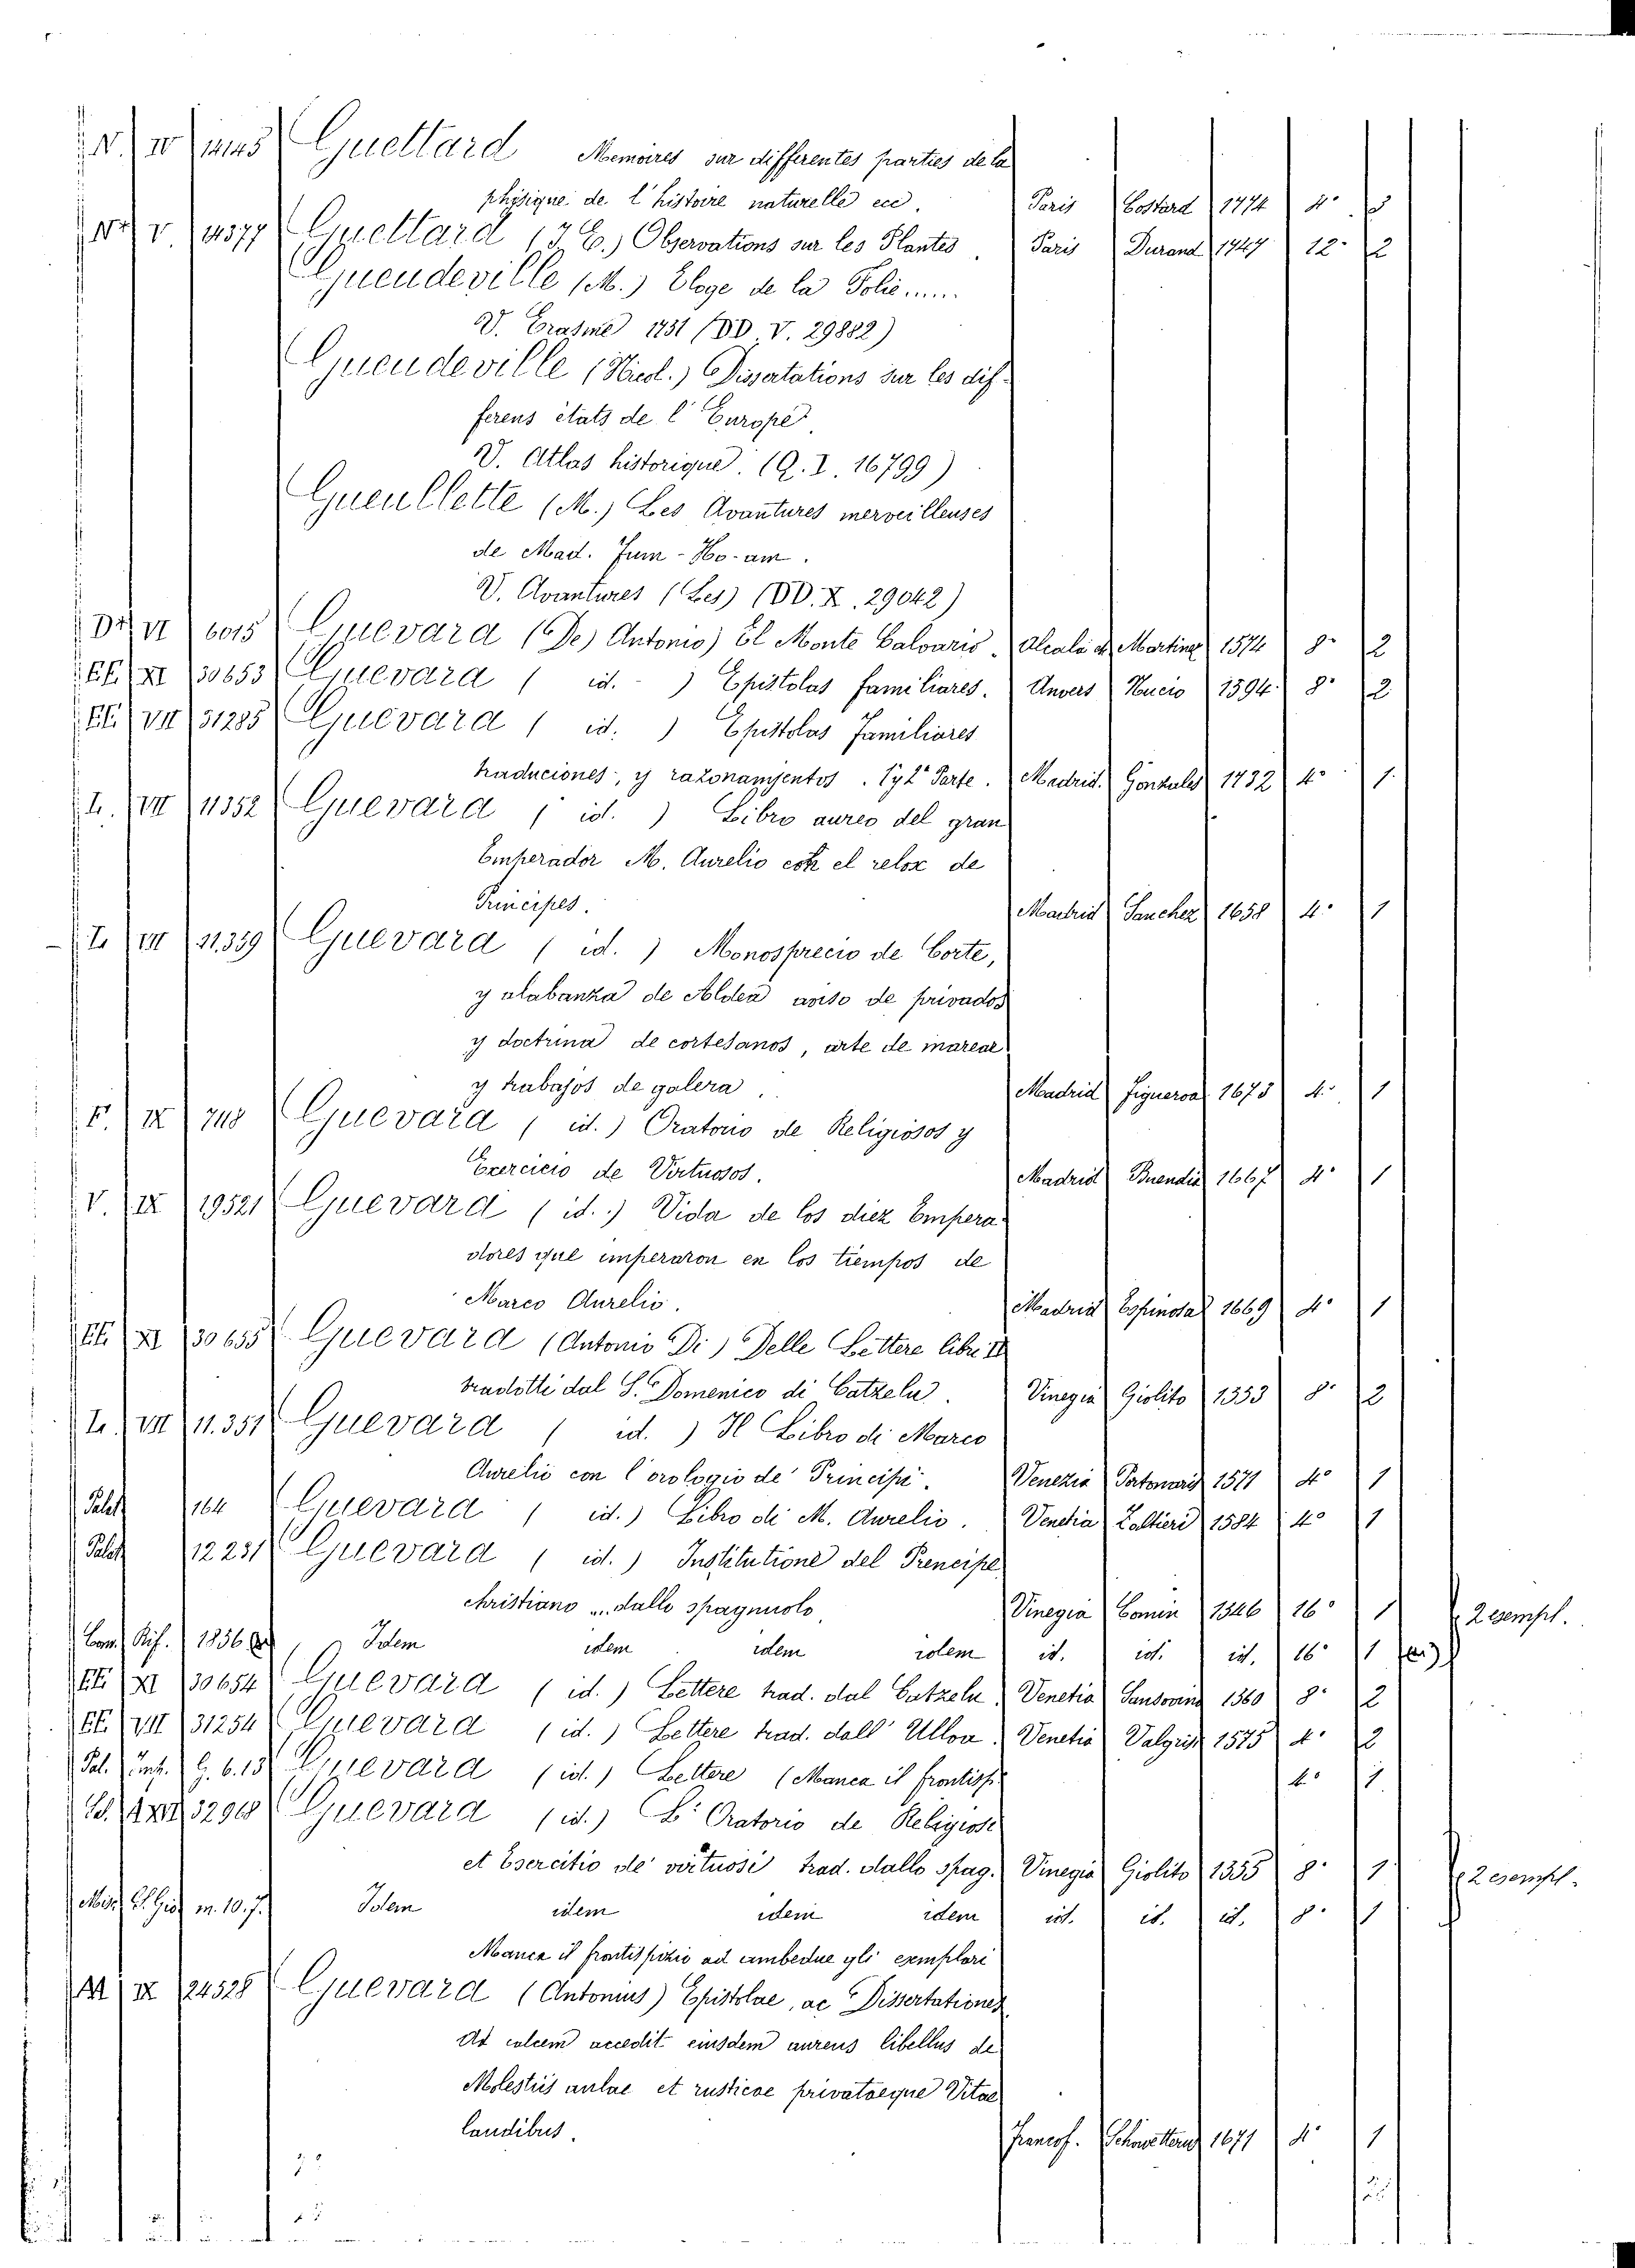 N. IV Guettard Memoires sur differentes parties de la
phisique de l'histoire naturelle ecc. Paris Costard 1774 4°
V 14377 Guettard (J. E.) Observations sur les Plantes. Paris Durand 1747 12° 2
Gueudeville (M.) Eloge de la Folie......
V. Erasme 1731 (DD. V. 29882)
Gueudeville (Nicol.) Dissertations sur les dif-
ferens états de l'Europe.
V. Atlas historique. (Q. I. 16799)
Gueullette (M.) Les Avantures merveilleuses
de Mad. Fum-Ho-am.
V. Avantures (Les) (DD. X. 29042)
VI 6015 Guevara (De) Antonio) El Monte Calvario. Alcala de Martinez 1574 8° 2
EE. XI 30653 Guevara ( id. - ) Epistolas familiares. Anvers Nucio 1594 8° 2
EE. VII 31285 Guevara ( id. ) Epistolas Familiares
traduciones, y razonamientos. 1 y 2° Parte. Madrid. Gonzales 1732 4° 1.
L. VII 11352 Guevara ( id. ) Libro aureo del gran
Emperador M. Aurelio con el relox de
Principes. Madrid Sanchez 1658 4° 1
L. VII 11.359 Guevara ( id. ) Monosprecio de Corte,
y alabanza de Aldea aviso de privados
y doctrina de cortesanos, arte de marear
y trabajos de galera. Madrid Figueroa 1673 4° 1
F. IX 748 Guevara ( id. ) Oratorio de Religiosos y
Exercicio de Virtuosos. Madrid Buendia 1667 4° 1
V. IX 19521 Guevara ( id. ) Vida de los diez Empera-
dores que imperaron en los tiempos de
Marco Aurelio. Madrid Espinosa 1669 4° 1
EE. XI 30655 Guevara (Antonio Di) Delle Lettere libri II
tradotti dal S. Domenico di Catzelu. Vinegia Giolito 1553 8° 2
L. VII 11.351 Guevara ( id. ) Il Libro di Marco
Aurelio con l'orologio de' Principi. Venezia 1571 4° 1
Palat 164 Guevara ( id. ) Libro di M. Aurelio. Venetia Zaltieri 1584 4° 1
Palat 12231 Guevara ( id. ) Institutione del Prencipe
christiano ... dallo spagnuolo. Vinegia Comin 1546 16° 1 2 esempl.
Com. Rif. 1856 Idem idem idem idem id. id. id. 16° 1
EE. XI 30654 Guevara ( id. ) Lettere trad. dal Catzelu. Venetia Sansovino 1560 8° 2
EE. VIII 31254 Guevara ( id. ) Lettere trad. dall' Ulloa. Venetia Valgrisi 1575 4° 2
Pal. G. 6. 13 Guevara ( id. ) Lettere (Manca il frontisp. 4° 1
Guevara ( id. ) L' Oratorio de Religiosi
et Esercitio de' virtuosi trad. dallo spag. Vinegia Giolito 1555 8° 1 2 esempl.
m. 10. 7. Idem idem idem idem id. id. id. 8° 1
Manca il frontispizio ad ambedue gli exemplari
IX 24528 Guevara (Antonius) Epistolae, ac Dissertationes
Ad calcem accedit eiusdem aureus libellus de
Molestiis aulae et rusticae privataeque Vitae
laudibus. Francof. 1671 4° 1